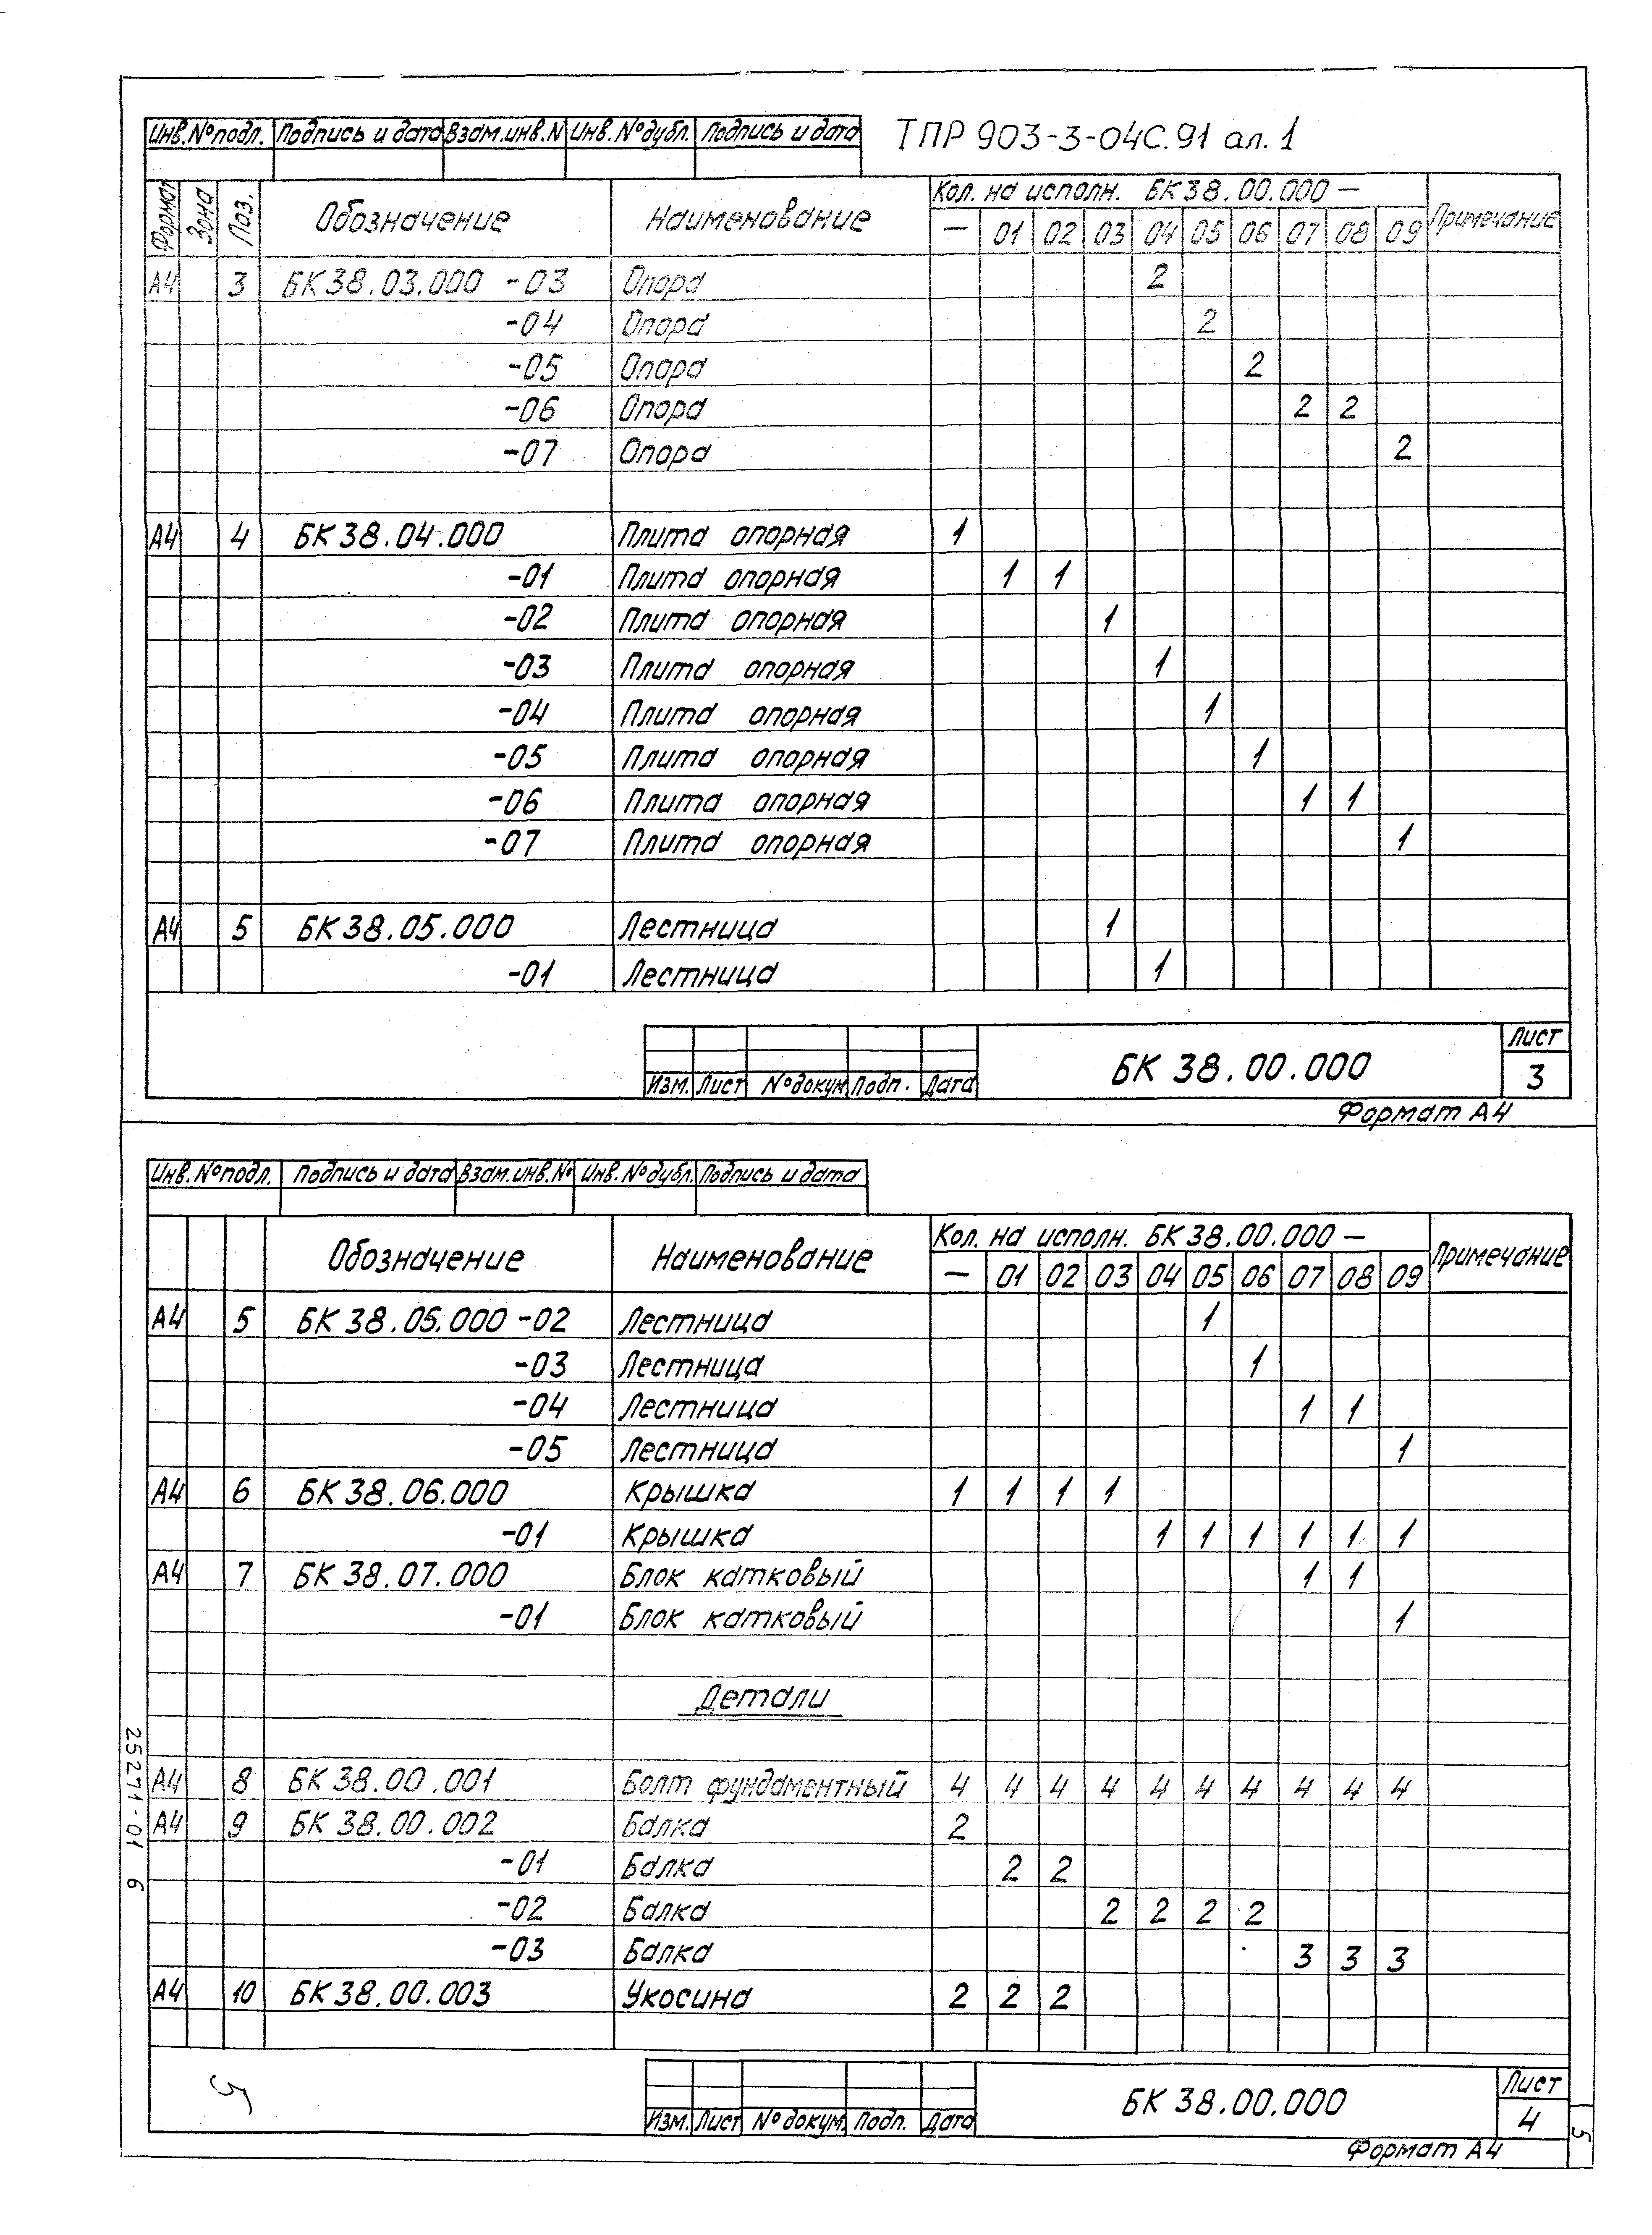 Инв.№подл. Подпись и дата Взам.инв.N Инв.№дубл. Подпись и дата ТПР 903-3-04С.91 ал.1
Формат Зона Поз. Обозначение Наименование Кол. на исполн. БК38.00.000 — Примечание
— 01 02 03 04 05 06 07 08 09
А4 3 БК38.03.000 -03 Опора 2
-04 Опора 2
-05 Опора 2
-06 Опора 2 2
-07 Опора 2
А4 4 БК38.04.000 Плита опорная 1
-01 Плита опорная 1 1
-02 Плита опорная 1
-03 Плита опорная 1
-04 Плита опорная 1
-05 Плита опорная 1
-06 Плита опорная 1 1
-07 Плита опорная 1
А4 5 БК38.05.000 Лестница 1
-01 Лестница 1
Изм. Лист №докум. Подп. Дата БК 38.00.000 Лист 3
Формат А4
Инв.№подл. Подпись и дата Взам.инв.№ Инв.№дубл. Подпись и дата
Обозначение Наименование Кол. на исполн. БК38.00.000 — Примечание
— 01 02 03 04 05 06 07 08 09
А4 5 БК38.05.000 -02 Лестница 1
-03 Лестница 1
-04 Лестница 1 1
-05 Лестница 1
А4 6 БК38.06.000 Крышка 1 1 1 1
-01 Крышка 1 1 1 1 1 1
А4 7 БК38.07.000 Блок катковый 1 1
-01 Блок катковый 1
Детали
А4 8 БК38.00.001 Болт фундаментный 4 4 4 4 4 4 4 4 4 4
А4 9 БК38.00.002 Балка 2
-01 Балка 2 2
-02 Балка 2 2 2 2
-03 Балка 3 3 3
А4 10 БК38.00.003 Укосина 2 2 2
Изм. Лист №докум. Подп. Дата БК 38.00.000 Лист 4
Формат А4
25271-01 6
5
5